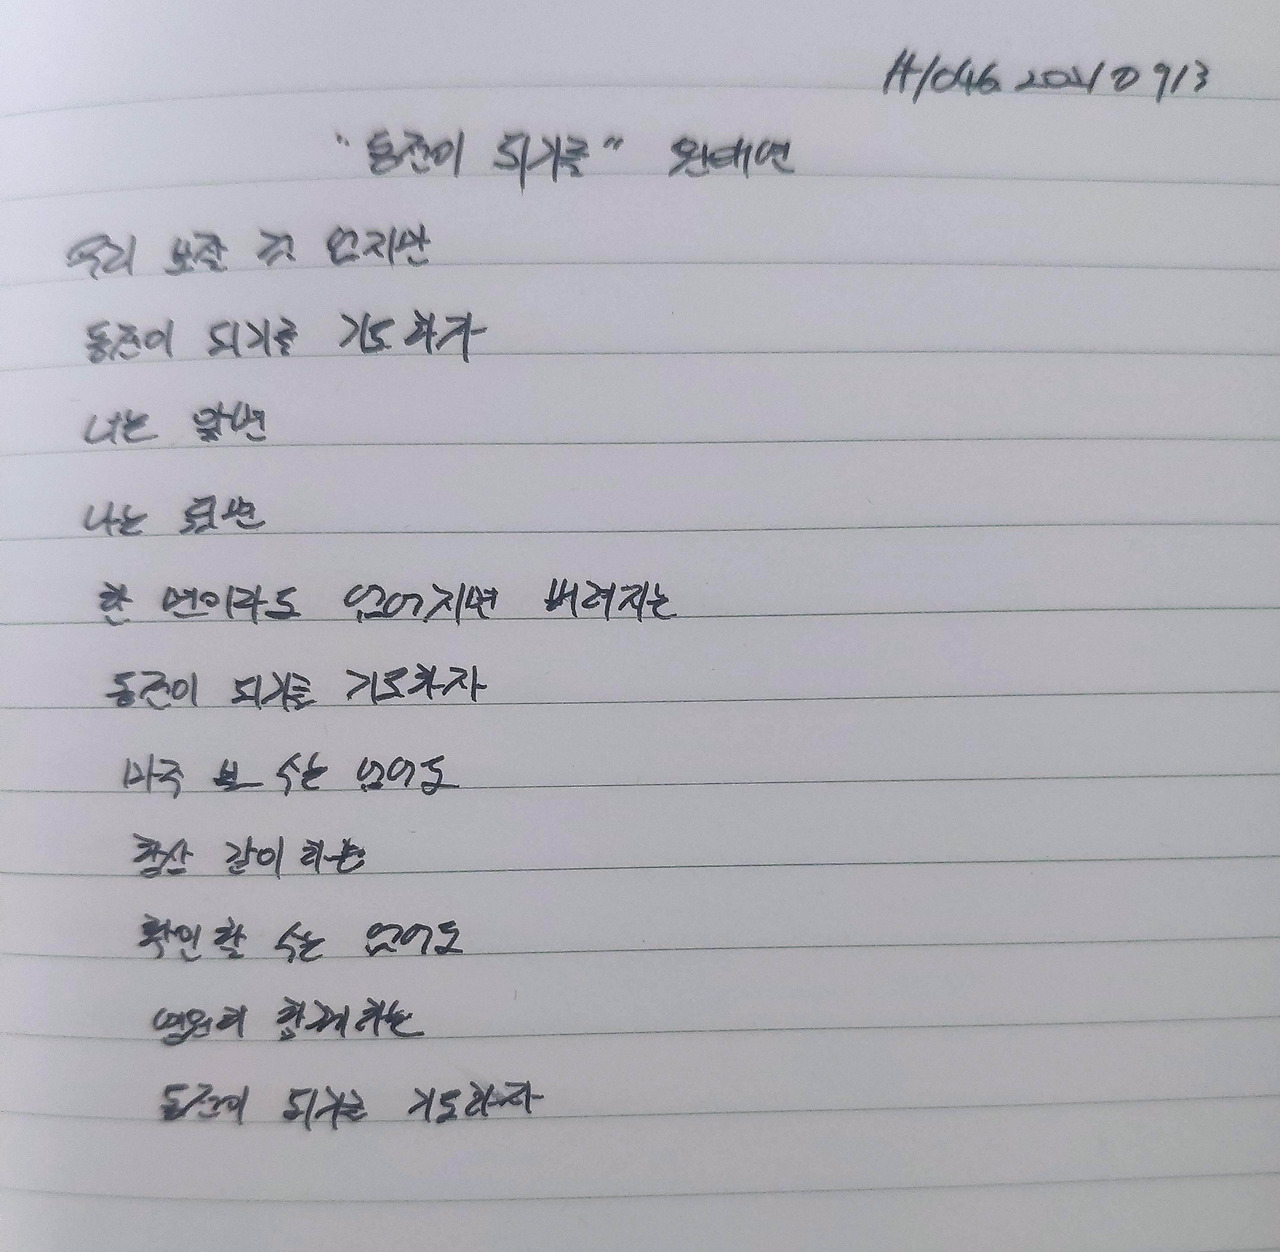 #1046 20210913
"동전이 되기를" 원태연
우리 보잘 것 없지만
동전이 되기를 기도하자
너는 앞면
나는 뒷면
한 면이라도 없어지면 버려지는
동전이 되기를 기도하자
마주 볼 수는 없어도
항상 같이 하는
확인할 수는 없어도
영원히 함께하는
동전이 되기를 기도하자